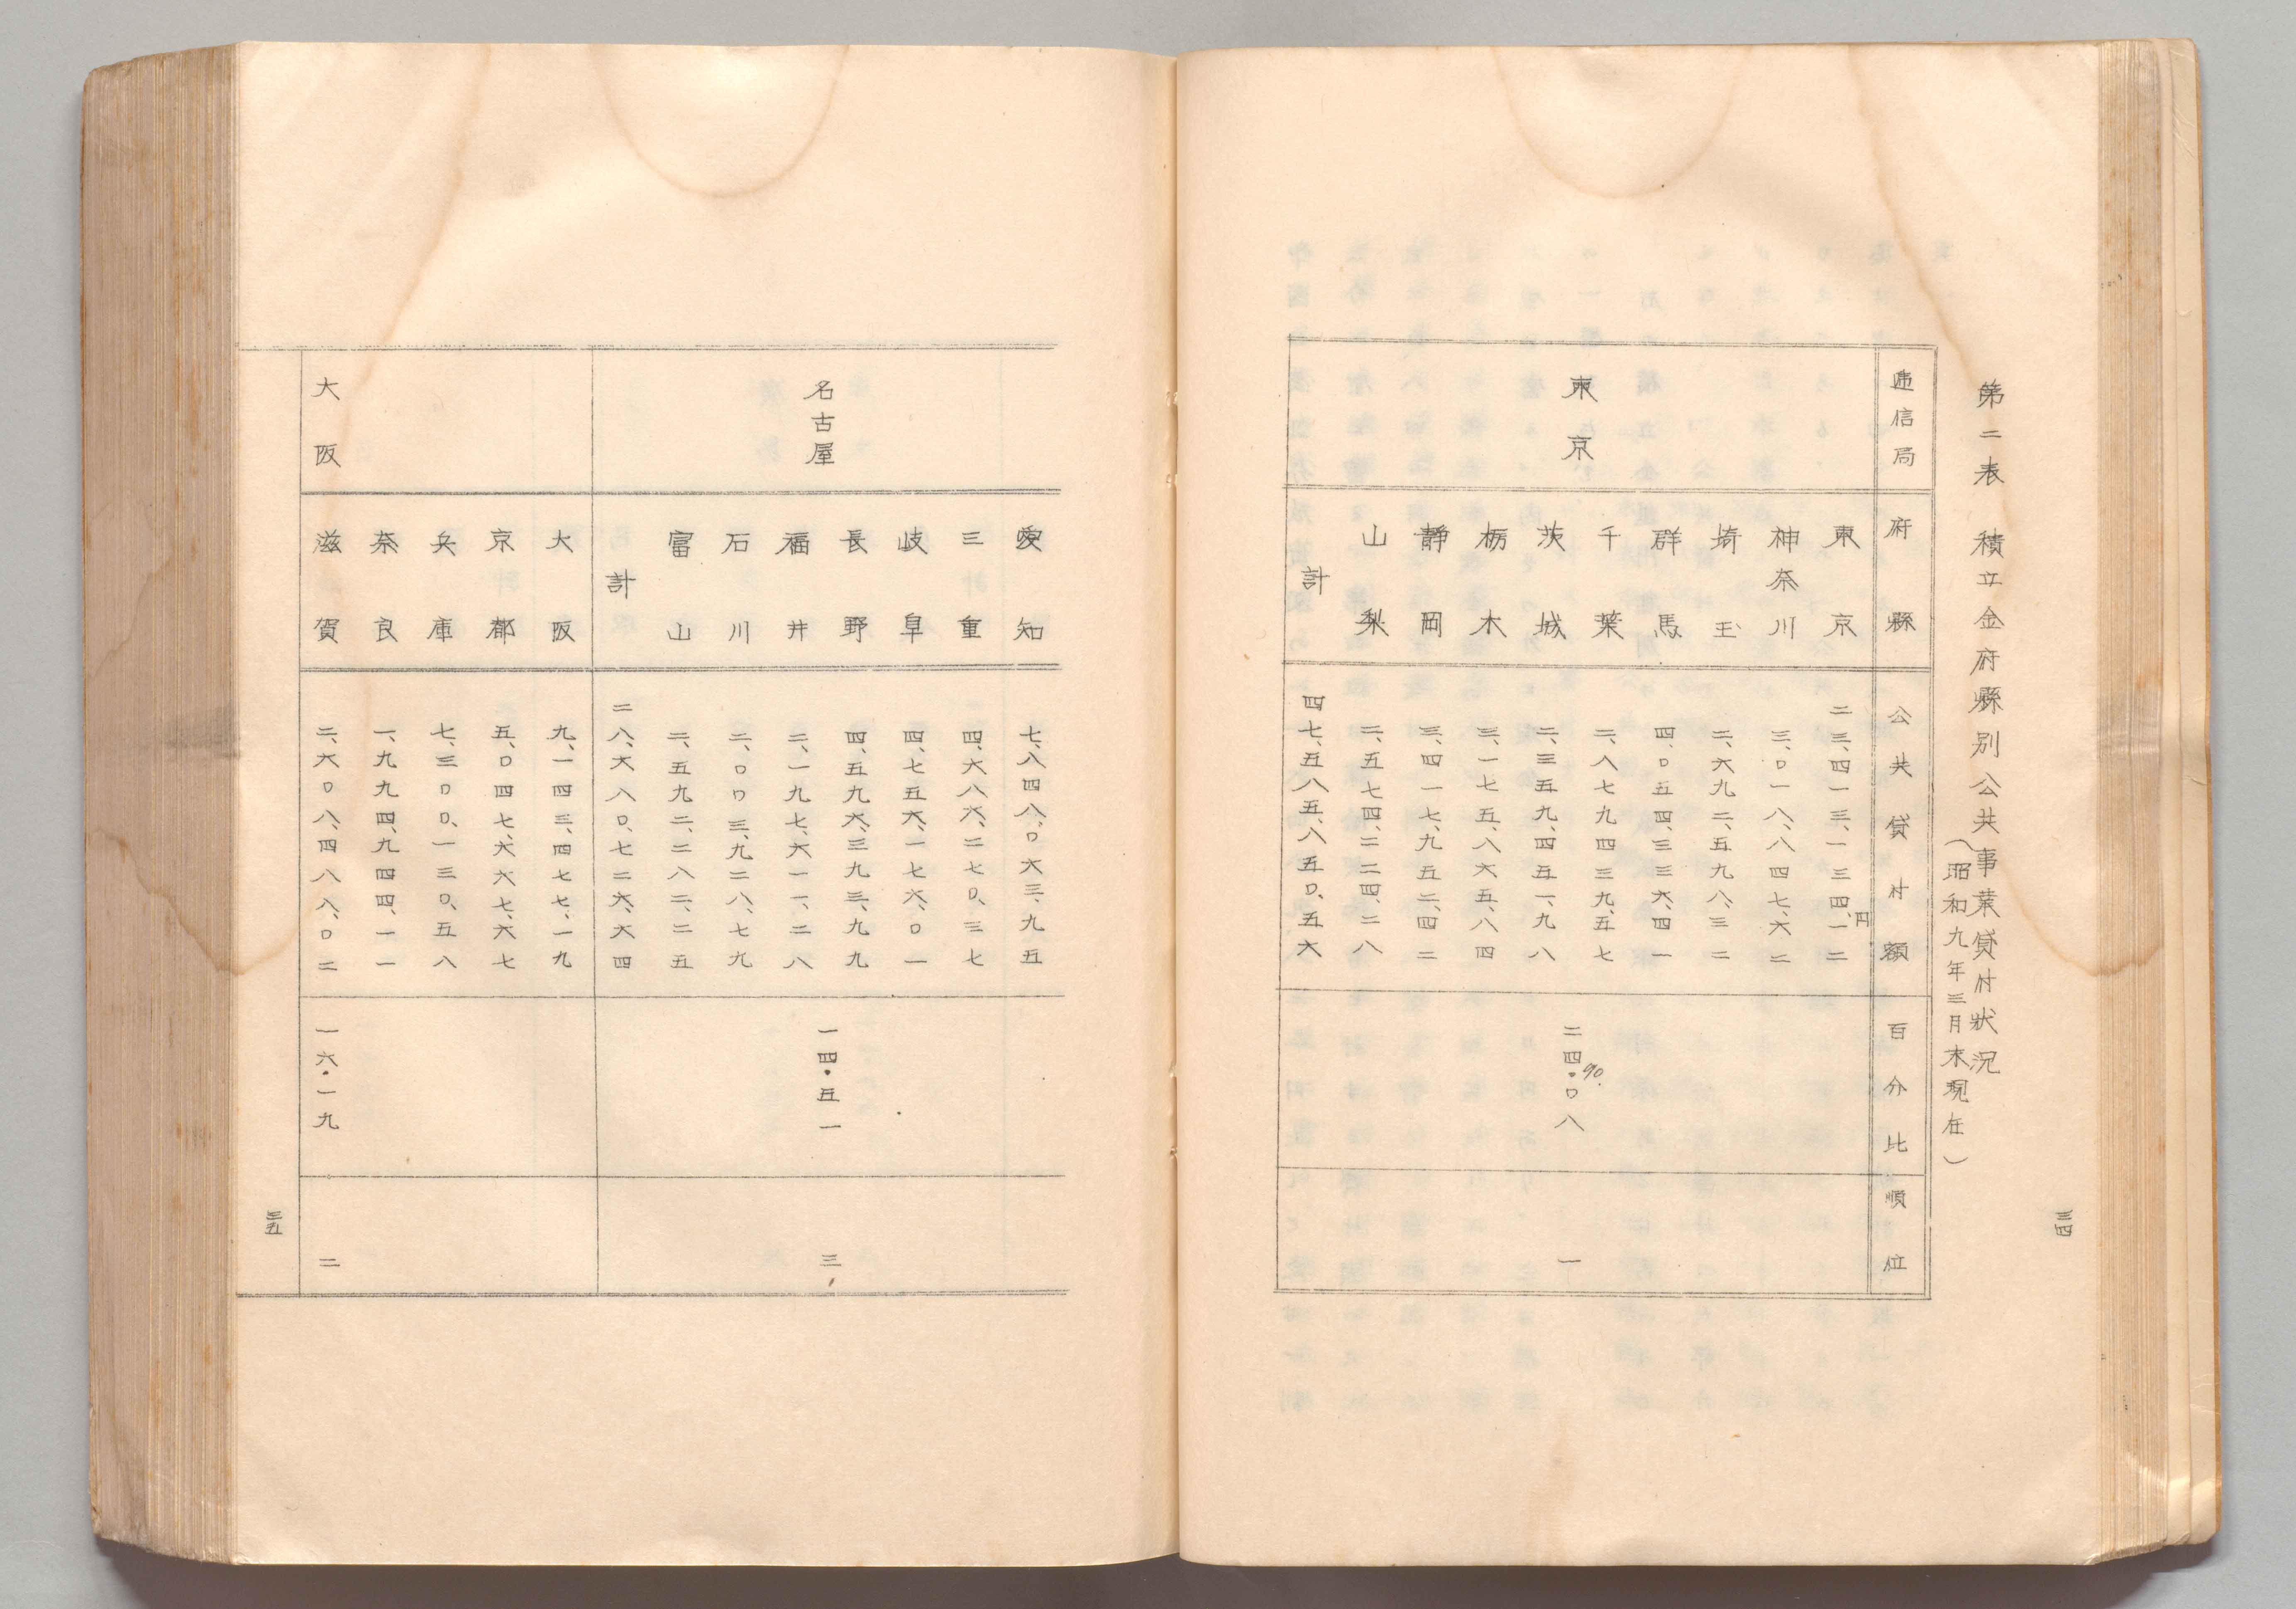 第二表　積立金府縣別公共事業貸付狀況
（昭和九年三月末現在）
逓信局
府縣
公共貸付額
百分比
順位
東京
東京
二三、四一三、一三四、一二
円
神奈川
三、〇一八、八四七、六二
埼玉
二、六九二、五九八、三二
群馬
四、〇五四、三三六、四一
千葉
二、八七九四三九、五七
茨城
二、三五九、四五一、九八
栃木
三、一七五、八六五、八四
靜岡
三、四一七、九五二、四二
山梨
二、五七四、二二四、二八
計
四七、五八五、八五〇、五六
二四・〇八
%
一
三四
名古屋
愛知
七、八四八、〇六三、九五
三重
四、六八六、二七〇、三七
岐阜
四、七五六、一七六、〇一
長野
四、五九六、三九三、九九
福井
二、一九七、六一一、二八
石川
二、〇〇三、九二八、七九
富山
二、五九二、二八二、二五
計
二八、六八〇、七二六、六四
一四・五一
三
大阪
大阪
九、一四三、四七七、一九
京都
五、〇四七、六六七、六七
兵庫
七、三〇〇、一三〇、五八
奈良
一、九九四、九四四、一一
滋賀
二、六〇八、四八八、〇二
一六・一九
二
三五